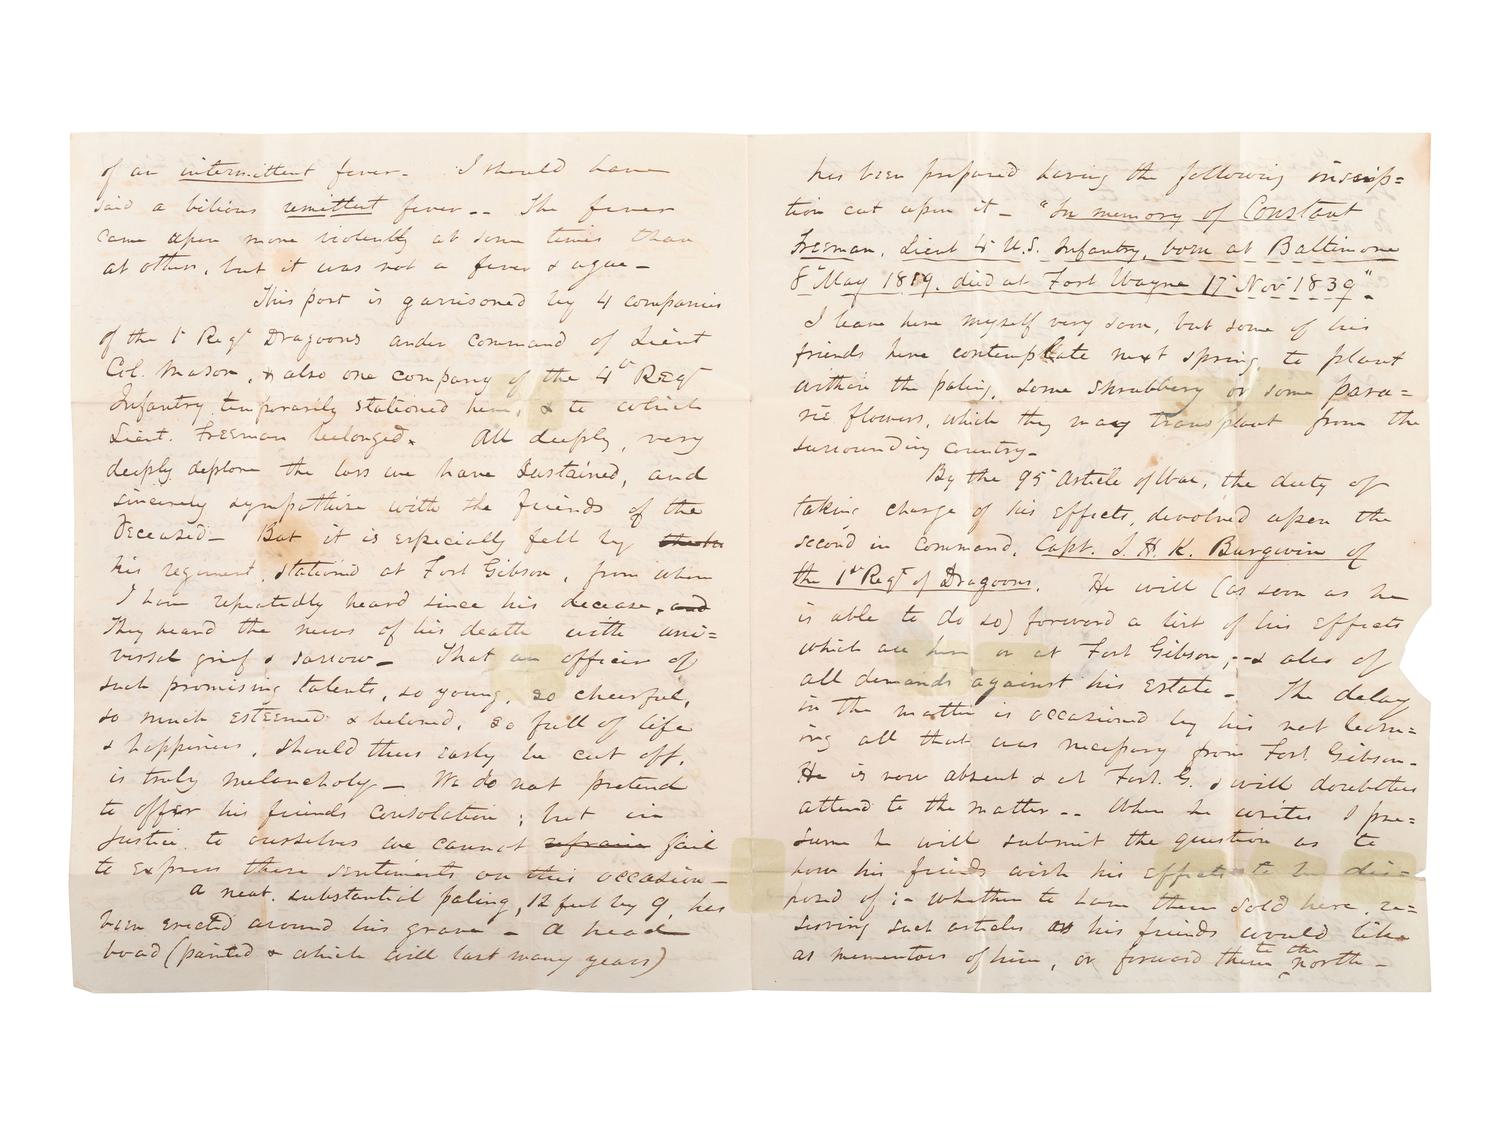 of an intermittent fever. I should have
said a bilious remittent fever -- The fever
came upon more violently at some times than
at others, but it was not a fever & ague -
This post is garrisoned by 4 companies
of the 1st Regt Dragoons under command of Lieut
Col. Mason, & also one company of the 4th Regt
Infantry temporarily stationed here, & to which
Lieut. Freeman belonged. All deeply, very
deeply deplore the loss we have sustained, and
sincerely sympathise with the friends of the
Deceased - But it is especially felt by
his regiment, stationed at Fort Gibson, from whom
I have repeatedly heard since his decease, and
They heard the news of his death with uni=
versal grief & sorrow - That an officer of
such promising talents, so young, so cheerful,
so much esteemed & beloved, so full of life
& happiness, should thus early be cut off,
is truly melancholy - We do not pretend
to offer his friends consolation; but in
justice to ourselves we cannot refrain fail
to express these sentiments on this occasion -
A neat, substantial paling, 12 feet by 9, has
been erected around his grave - A head
board (painted & which will last many years)
has been prepared having the following inscrip=
tion cut upon it - "In memory of Constant
Freeman, Lieut 4th U.S. Infantry, born at Baltimore
8th May 1819. died at Fort Wayne 17th Nov 1839".
I leave here myself very soon, but some of his
friends here contemplate next spring, to plant
within the paling, some shrubbery or some para=
rie flowers, which they may transplant from the
surrounding country.
By the 95th Article of War, the duty of
taking charge of his effects, devolved upon the
second in command, Capt. J. H. K. Burgwin of
the 1st Regt of Dragoons. He will (as soon as he
is able to do so) forward a list of his effects
which are here or at Fort Gibson; -& also of
all demands against his Estate - The delay
in the matter is occasioned by his not learn=
ing all that was necessary from Fort Gibson -
He is now absent & at Fort. G. & will doubtless
attend to the matter -- When he writes I pre=
sume he will submit the question as to
how his friends wish his effects to be dis=
posed of :- whether to have them sold here, re=
serving such articles as his friends would like
as mementoes of him, or forward them to the north -